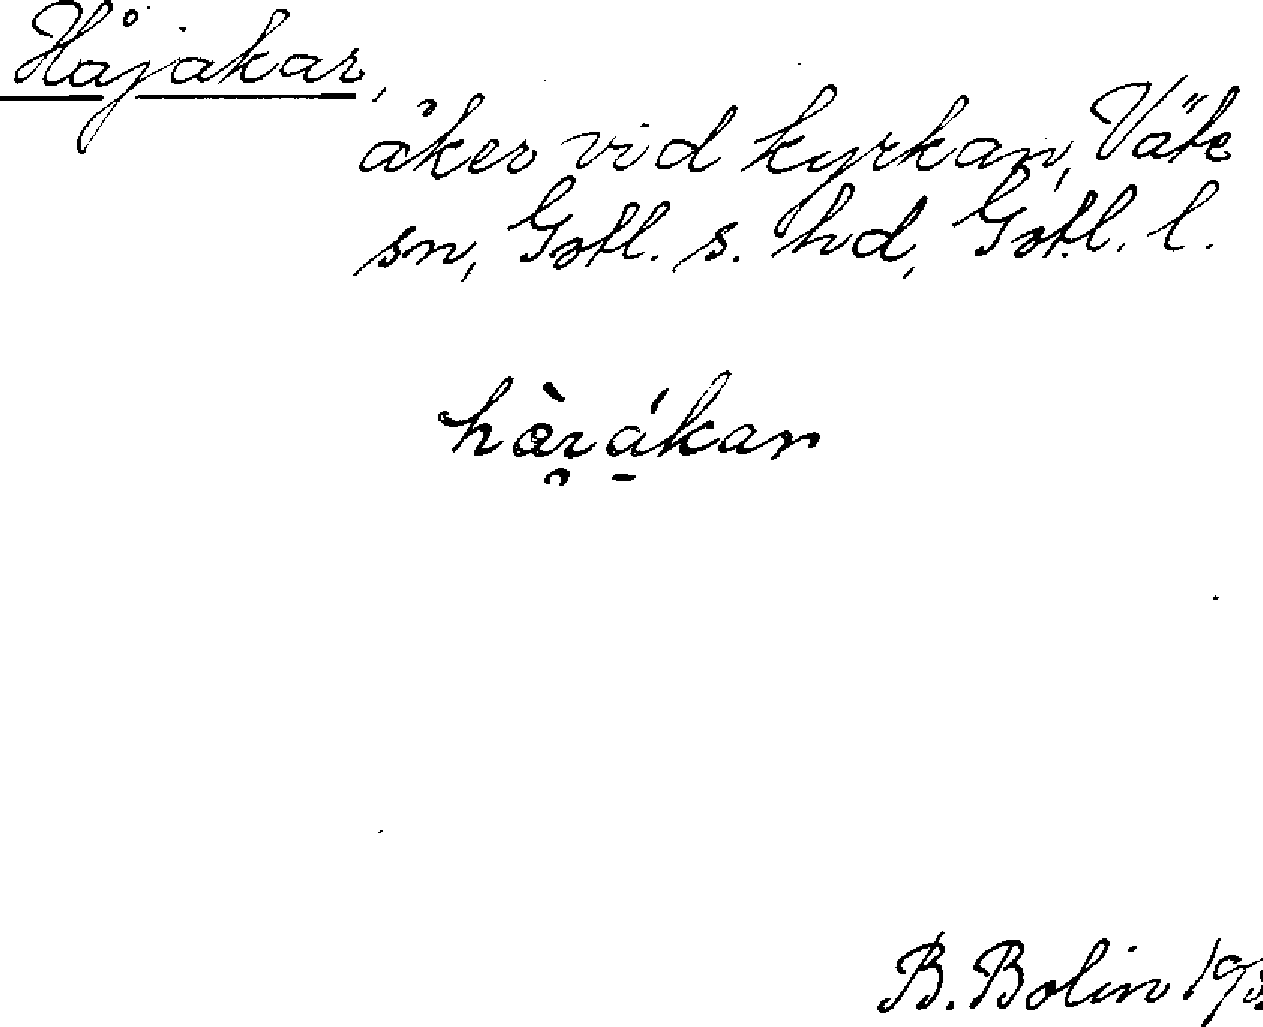 Håjakar,
åker vid kyrkan, Väte
sn, Gotl. s. hd, Gotl. l.
B. Bolin